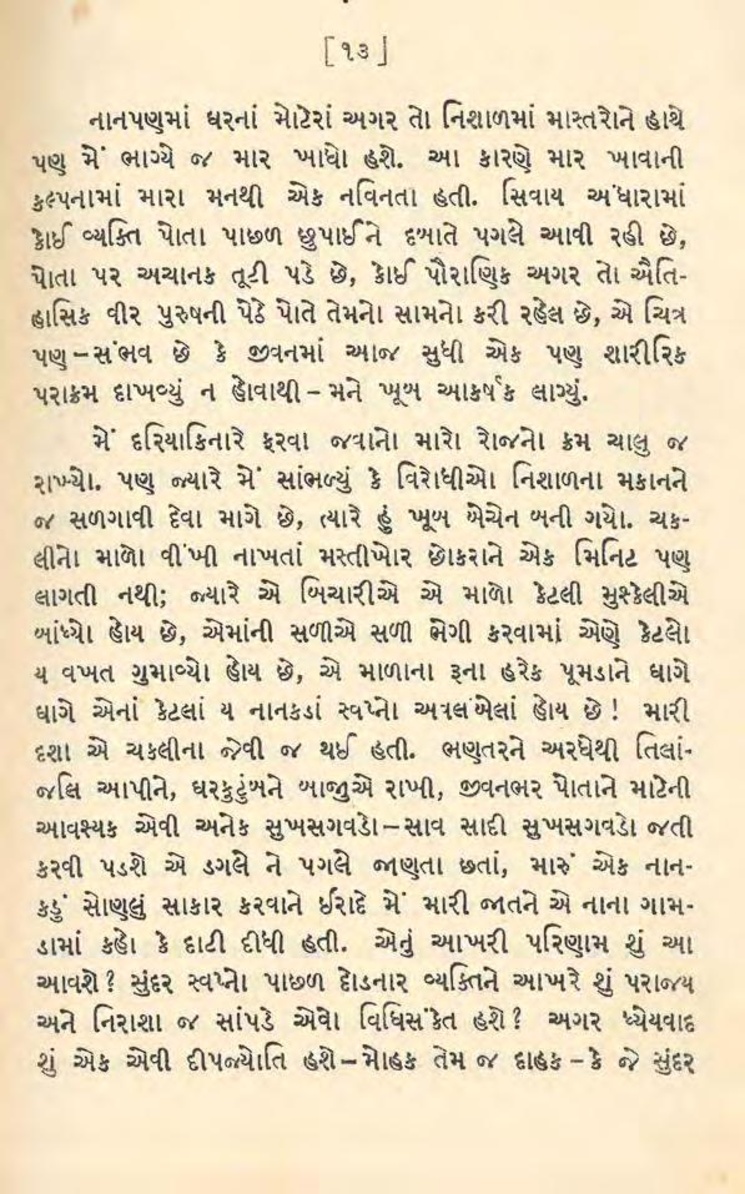 [ ૧૩ ]
નાનપણમાં ઘરનાં મોટેરાં અગર તો નિશાળમાં માસ્તરોને હાથે
પણ મેં ભાગ્યે જ માર ખાધો હશે. આ કારણે માર ખાવાની
કલ્પનામાં મારા મનથી એક નવિનતા હતી. સિવાય અંધારામાં
કોઈ વ્યક્તિ પોતા પાછળ છુપાઈને દબાતે પગલે આવી રહી છે,
પોતા પર અચાનક તૂટી પડે છે, કોઈ પૌરાણિક અગર તો ઐતિ-
હાસિક વીર પુરુષની પેઠે પોતે તેમનો સામનો કરી રહેલ છે, એ ચિત્ર
પણ – સંભવ છે કે જીવનમાં આજ સુધી એક પણ શારીરિક
પરાક્રમ દાખવ્યું ન હોવાથી – મને ખૂબ આકર્ષક લાગ્યું.
મેં દરિયાકિનારે ફરવા જવાનો મારો રોજનો ક્રમ ચાલુ જ
રાખ્યો. પણ જ્યારે મેં સાંભળ્યું કે વિરોધીઓ નિશાળના મકાનને
જ સળગાવી દેવા માગે છે, ત્યારે હું ખૂબ બેચેન બની ગયો. ચક-
લીનો માળો વીંખી નાખતાં મસ્તીખોર છોકરાને એક મિનિટ પણ
લાગતી નથી; જ્યારે એ બિચારીએ એ માળો કેટલી મુશ્કેલીએ
બાંધ્યો હોય છે, એમાંની સળીએ સળી ભેગી કરવામાં એણે કેટલો
ય વખત ગુમાવ્યો હોય છે, એ માળાના રૂના હરેક પૂમડાને ધાગે
ધાગે એનાં કેટલાં ય નાનકડાં સ્વપ્નો અવલંબેલાં હોય છે! મારી
દશા એ ચકલીના જેવી જ થઈ હતી. ભણતરને અરધેથી તિલાં-
જલિ આપીને, ઘરકુટુંબને બાજુએ રાખી, જીવનભર પોતાને માટેની
આવશ્યક એવી અનેક સુખસગવડો – સાવ સાદી સુખસગવડો જતી
કરવી પડશે એ ડગલે ને પગલે જાણતા છતાં, મારું એક નાન-
કડું સોણલું સાકાર કરવાને ઈરાદે મેં મારી જાતને એ નાના ગામ-
ડામાં કહો કે દાટી દીધી હતી. એનું આખરી પરિણામ શું આ
આવશે? સુંદર સ્વપ્નો પાછળ દોડનાર વ્યક્તિને આખરે શું પરાજય
અને નિરાશા જ સાંપડે એવો વિધિસંકેત હશે? અગર ધ્યેયવાદ
શું એક એવી દીપજ્યોતિ હશે – મોહક તેમ જ દાહક – કે જે સુંદર